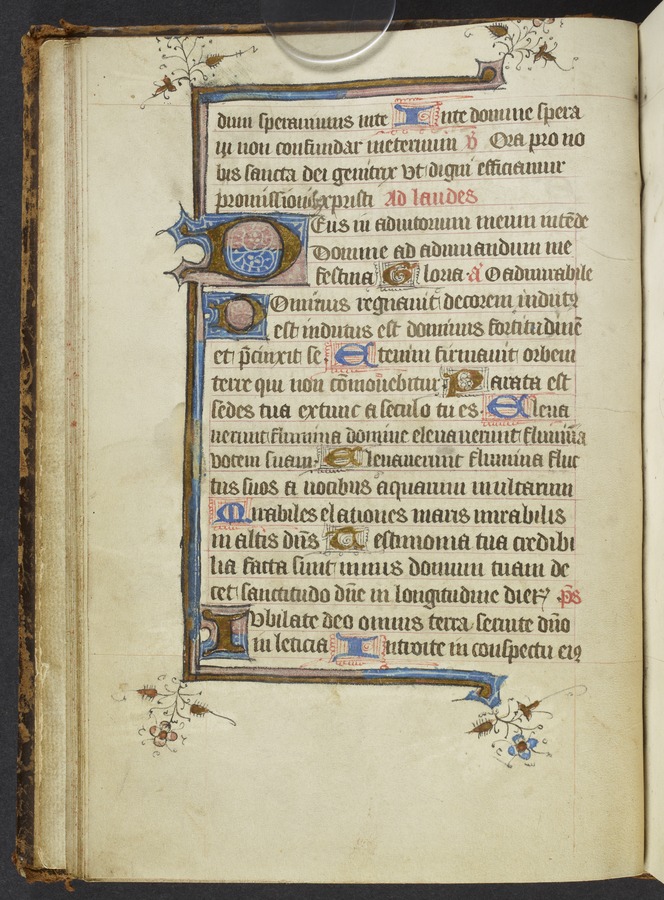 dum sperauimus in te In te domine spera
ui non confundar in eternum v̄ Ora pro no
bis sancta dei genitrix vt digni efficiamur
promissionib; xpristi Ad laudes
Eus in adiutorium meum intēde
Domine ad adiuuandum me
festina Gloria · a̅ O admirabile
Ominus regnauit decorem indutꝰ
est indutus est dominus fortitudinē
et p̄cinxit se · Etenim firmauit orbem
terre qui non cōmouebitur Parata est
sedes tua ex tunc a seculo tu es · Eleua
uerunt flumina domine eleuauerunt flumina
vocem suam · Eleuauerunt flumina fluc
tus suos a uocibus aquarum multarum
Mirabiles elationes maris mirabilis
in altis dn̄s Testimonia tua credibi
lia facta sunt nimis domum tuam de
cet sanctitudo dn̄e in longitudine dierꝝ · p̄s
Jvbilate deo omnis terra seruite dn̄o
in leticia Introite in conspectu eiꝰ